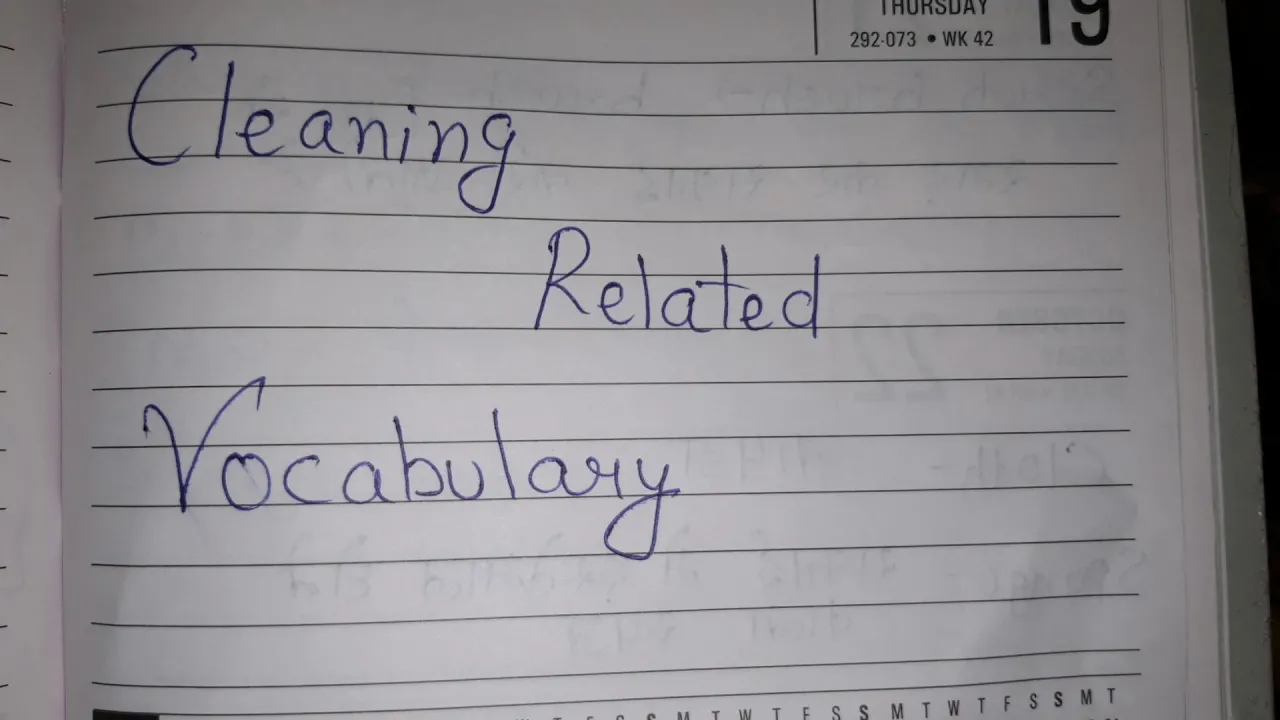 THURSDAY 19
292-073 • WK 42
Cleaning
Related
Vocabulary
M T W T F S S M T W T F S S M T